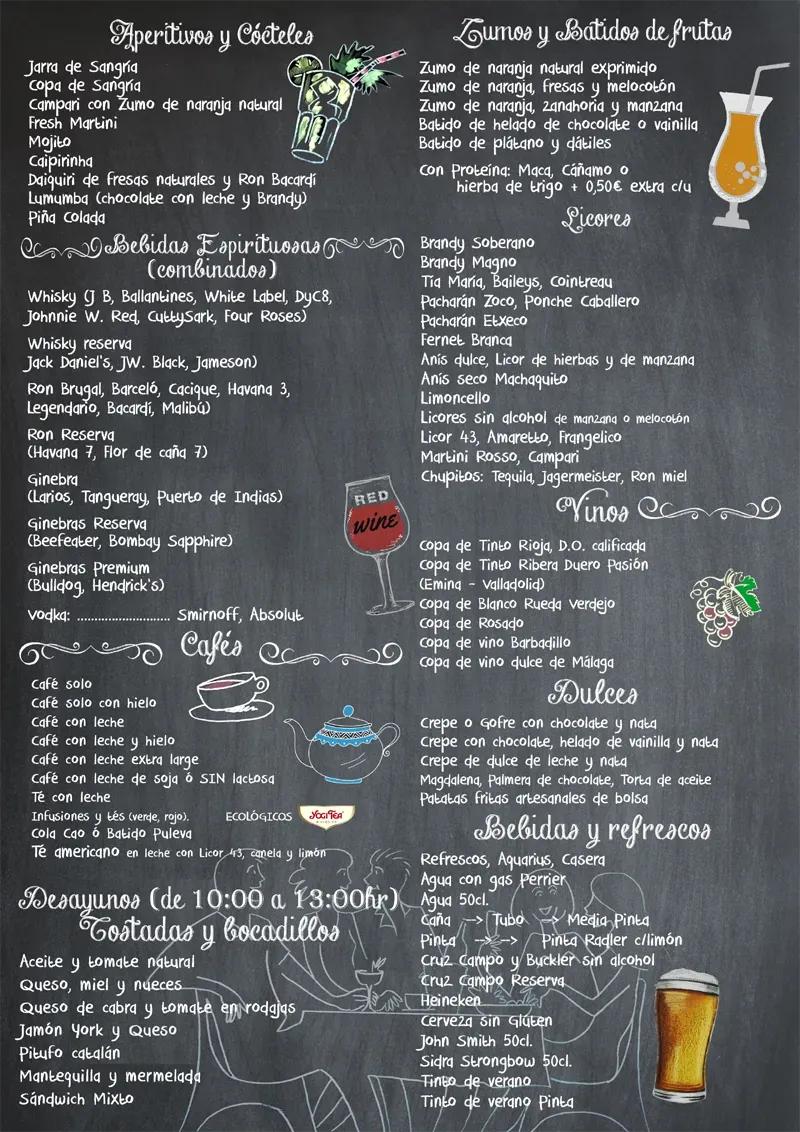 Aperitivos y Cócteles
Jarra de Sangría
Copa de Sangría
Campari con Zumo de naranja natural
Fresh Martini
Mojito
Caipirinha
Daiquiri de fresas naturales y Ron Bacardí
Lumumba (chocolate con leche y Brandy)
Piña Colada
Bebidas Espirituosas
(combinados)
Whisky (J B, Ballantines, White Label, DyC8,
Johnnie W. Red, CuttySark, Four Roses)
Whisky reserva
Jack Daniel's, JW. Black, Jameson)
Ron Brugal, Barceló, Cacique, Havana 3,
Legendario, Bacardí, Malibú)
Ron Reserva
(Havana 7, Flor de caña 7)
Ginebra
(Larios, Tangueray, Puerto de Indias)
Ginebras Reserva
(Beefeater, Bombay Sapphire)
Ginebras Premium
(Bulldog, Hendrick's)
Vodka: ........................... Smirnoff, Absolut
RED
wine
Cafés
Café solo
Café solo con hielo
Café con leche
Café con leche y hielo
Café con leche extra large
Café con leche de soja ó SIN lactosa
Té con leche
Infusiones y tés (verde, rojo). ECOLÓGICOS YOGI TEA
Cola Cao ó Batido Puleva
Té americano en leche con Licor 43, canela y limón
Desayunos (de 10:00 a 13:00hr)
Tostadas y bocadillos
Aceite y tomate natural
Queso, miel y nueces
Queso de cabra y tomate en rodajas
Jamón York y Queso
Pitufo catalán
Mantequilla y mermelada
Sándwich Mixto
Zumos y Batidos de frutas
Zumo de naranja natural exprimido
Zumo de naranja, fresas y melocotón
Zumo de naranja, zanahoria y manzana
Batido de helado de chocolate o vainilla
Batido de plátano y dátiles
Con Proteína: Maca, Cáñamo o
hierba de trigo + 0,50€ extra c/u
Licores
Brandy Soberano
Brandy Magno
Tía María, Baileys, Cointreau
Pacharán Zoco, Ponche Caballero
Pacharán Etxeco
Fernet Branca
Anís dulce, Licor de hierbas y de manzana
Anís seco Machaquito
Limoncello
Licores sin alcohol de manzana o melocotón
Licor 43, Amaretto, Frangelico
Martini Rosso, Campari
Chupitos: Tequila, Jagermeister, Ron miel
Vinos
Copa de Tinto Rioja, D.O. calificada
Copa de Tinto Ribera Duero Pasión
(Emina - Valladolid)
Copa de Blanco Rueda Verdejo
Copa de Rosado
Copa de vino Barbadillo
Copa de vino dulce de Málaga
Dulces
Crepe o Gofre con chocolate y nata
Crepe con chocolate, helado de vainilla y nata
Crepe de dulce de leche y nata
Magdalena, Palmera de chocolate, Torta de aceite
Patatas fritas artesanales de bolsa
Bebidas y refrescos
Refrescos, Aquarius, Casera
Agua con gas Perrier
Agua 50cl.
Caña --> Tubo --> Media Pinta
Pinta --> --> Pinta Radler c/limón
Cruz Campo y Buckler sin alcohol
Cruz Campo Reserva
Heineken
Cerveza sin Glúten
John Smith 50cl.
Sidra Strongbow 50cl.
Tinto de verano
Tinto de verano Pinta